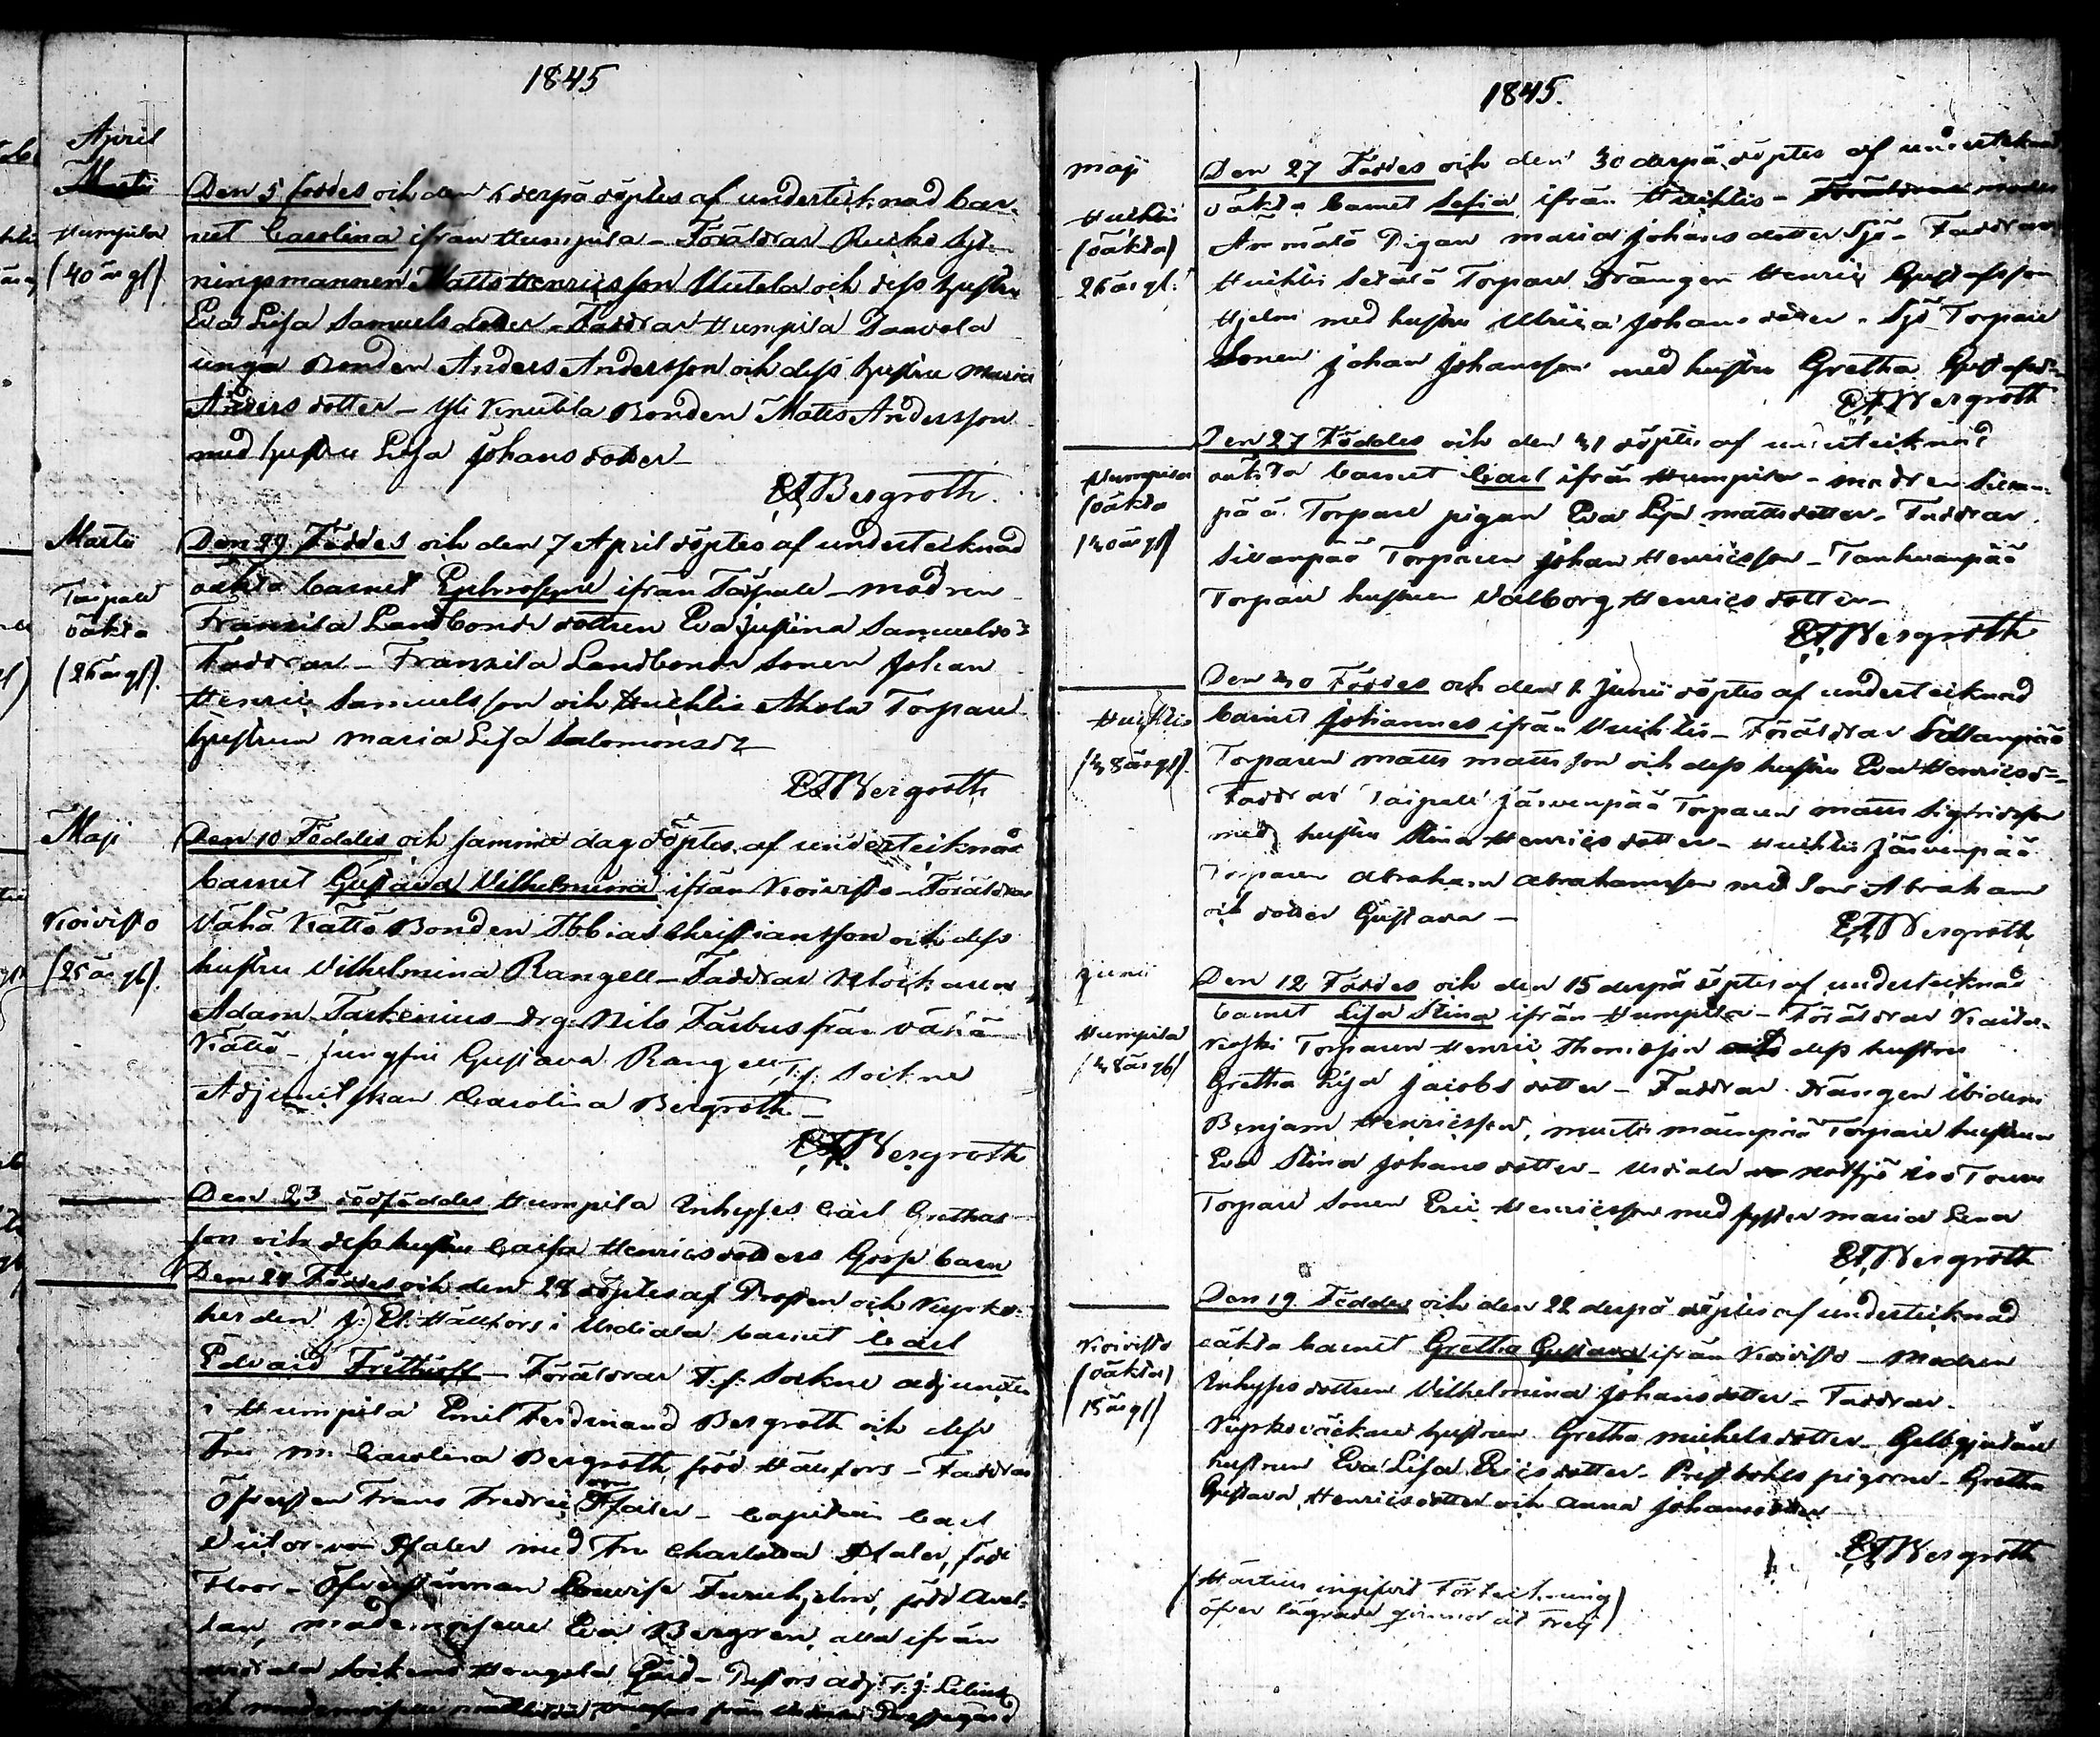 1845
April
Martii
Humpila
(40 år gl)
Den 5 föddes och den 6 derpå döptes af undertecknad bar-
net Carolina ifrån Humpila - Föräldrar Ruskå
ningsmannen Matts Henricsson Uutela och dess hustru
Eva Lisa Samuelsdotter - Faddrar Humpila Daavola
unga Bonden Anders Andersson och dess hustru Maria
Anders dotter - Yli Knutila Bonden Matts Andersson
med hustru Lisa Johans dotter -
EFBergroth.
Martii
Taipale
oäkta
(26 år gl).
Den 29 Föddes och den 7 April döptes af undertecknad
oäkta barnet Ephrosyne ifrån Taipale - modren
Franzila Landbonde dottren Eva Justina Samuelsdr
Faddrar - Franzila Landbonde Sonen Johan
Henric Samuelsson och Huchtis Ahola Torpare
hustrun Maria Lisa Salomonsdr
EFBergroth
Maji
Koivisto
(25 år gl).
Den 10 Föddes och samma dag döptes af undertecknad
barnet Gustava Vilhelmina ifrån Koivisto - Föräldrar
Vähä Kättö Bonden Tobias Christiansson och dess
hustru Vilhelmina Rangell - Faddrar Klockaren
Adam Taxkenius - Drg: Nils Färbus från Vähä
Kättö - Jungfru Gustava Rangell, T.f. Sockne
Adjunctskan Carolina Bergroth -
EFBergroth
Den 23 dödföddes Humpila Inhyses Carl Grethas-
son och dess hustru Caisa Henricsdotters Gosse barn
Den 24 Föddes och den 28 döptes af Prosten och Kyrko-
herden J: El: Hällfors i Urdiala barnet Carl
Edvard Frithioff - Föräldrar T.f. Sockne adjuncten
i Humpila Emil Ferdinand Bergroth och dess
Fru M: Carolina Bergroth född Hällfors - Faddrar
Öfversten Frans Fredric von Pfaler - Capitain Carl
Victor von Pfaler med Fru Charlotta Pfaler, född
Floor - Öfverstinnan Lovisa Furuhjelm, född Avel-
lan, mademoiselle Eva Bergren, alla ifrån
Urdiala Socken Hongola Gård - Pastors adj: T: J:
och mademoiselle från Urdiala Prestegård
1845.
Maji
Huchtis
(oäkta)
26 år gl.
Den 27 Föddes och den 30 derpå döptes af undertecknad
oäkta barnet Sofia ifrån Huchtis - Föräldrar modren
Pigan Maria Johansdotter Sjö - Faddrar
Huchtis Setälä Torpare Drängen Henric Gustafsson
Hjelm med hustru Ulrica Johansdotter - Sjö Torpare
Sonen Johan Johansson med hustru Gretha Gustafsdr
EFBergroth
Humpila
(oäkta
(30 år gl)
Den 27 Föddes och den 31 döptes af undertecknad
oäkta barnet Carl ifrån Humpila - modren Sillan-
pää Torpare pigan Eva Lisa Mattsdotter - Faddrar
Sillanpää Torparen Johan Henricsson - Tanhuanpää
Torpare hustrun Valborg Henrics dotter -
EFBergroth
Huchtis
(38 år gl).
Den 30 Föddes och den 1 Junii döptes af undertecknad
barnet Johannes ifrån Huchtis - Föräldrar Sillanpää
Torparen Matts Mattsson och dess hustru Eva Henricsdr
Faddrar Taipale Järvenpää Torparen Matts Sigfridsson
med hustru Stina Henrics dotter - Huchtis Järvenpää
Torparen Abraham Abrahamsson med Son Abraham
och dotter Gustava -
EFBergroth
Junii
Humpila
(38 år gl)
Den 12 Föddes och den 15 derpå döptes af undertecknad
barnet Lisa Stina ifrån Humpila - Föräldrar
Torparen Henric Thomasson och dess hustru
Gretha Lisa Jacobs dotter - Faddrar Drängen ibidem
Benjam Henricsson, Torpare hustrun
Eva Stina Johans dotter - Urdiala
Torpare Sonen Eric Henricsson med syster Maria Lena
EFBergroth
Koivisto
(oäkta)
(15 år gl)
Den 19 Föddes och den 22 derpå döptes af undertecknad
oäkta barnet Gretha Gustava ifrån Koivisto - Modren
Inhyses dottren Vilhelmina Johansdotter - Faddrar
Kyrkoväktare hustrun Gretha Michelsdotter - Gelbgjutare
hustrun Eva Lisa Ericsdotter - Prestbohls pigorna - Gretha
Gustava Henricsdotter och Anna Johansdotter
EFBergroth
(Härtill ingifvit Förteckning
öfver lägrade qvinnor